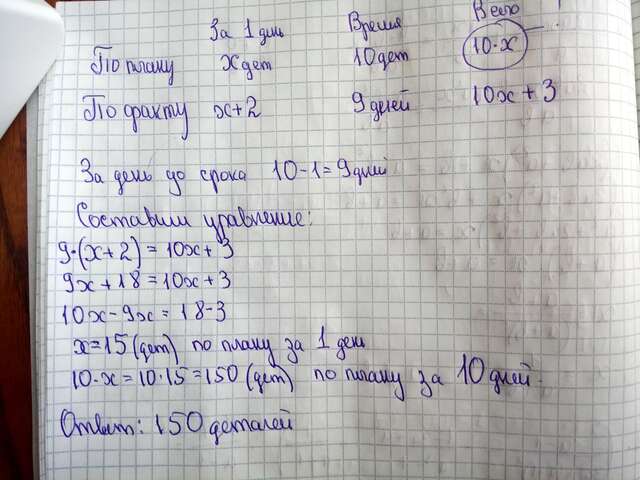 За 1 день Время Всего
По плану х дет 10 дет 10·х
По факту х+2 9 дней 10х+3
За день до срока 10-1=9 дний
Составим уравнение:
9·(х+2)=10х+3
9х+18=10х+3
10х-9х=18-3
х=15 (дет) по плану за 1 день
10·х=10·15=150 (дет) по плану за 10 дней.
Ответ: 150 деталей